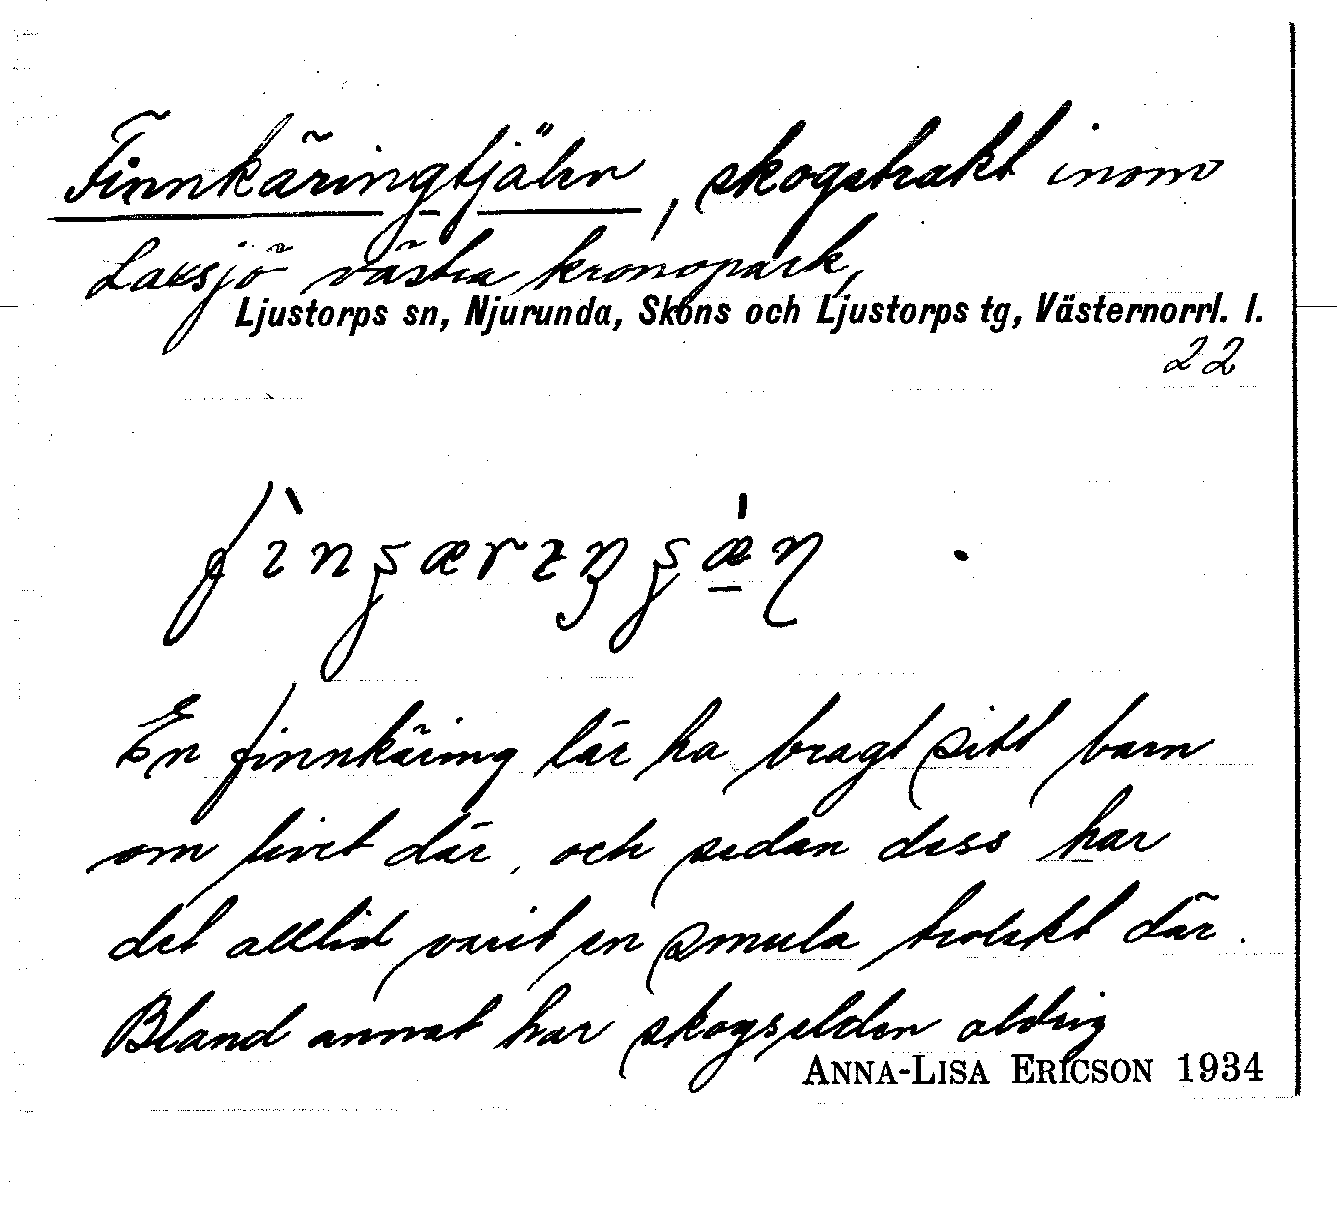 Finnkäringtjäln, skogstrakt inom
Laxsjö västra kronopark,
Ljustorps sn, Njurunda, Sköns och Ljustorps tg, Västernorrl. l.
22
En finnkäring lär ha bragt sitt barn
om livet där, och sedan dess har
det alltid varit en smula trolskt där.
Bland annat har skogselden aldrig
ANNA-LISA ERICSON 1934